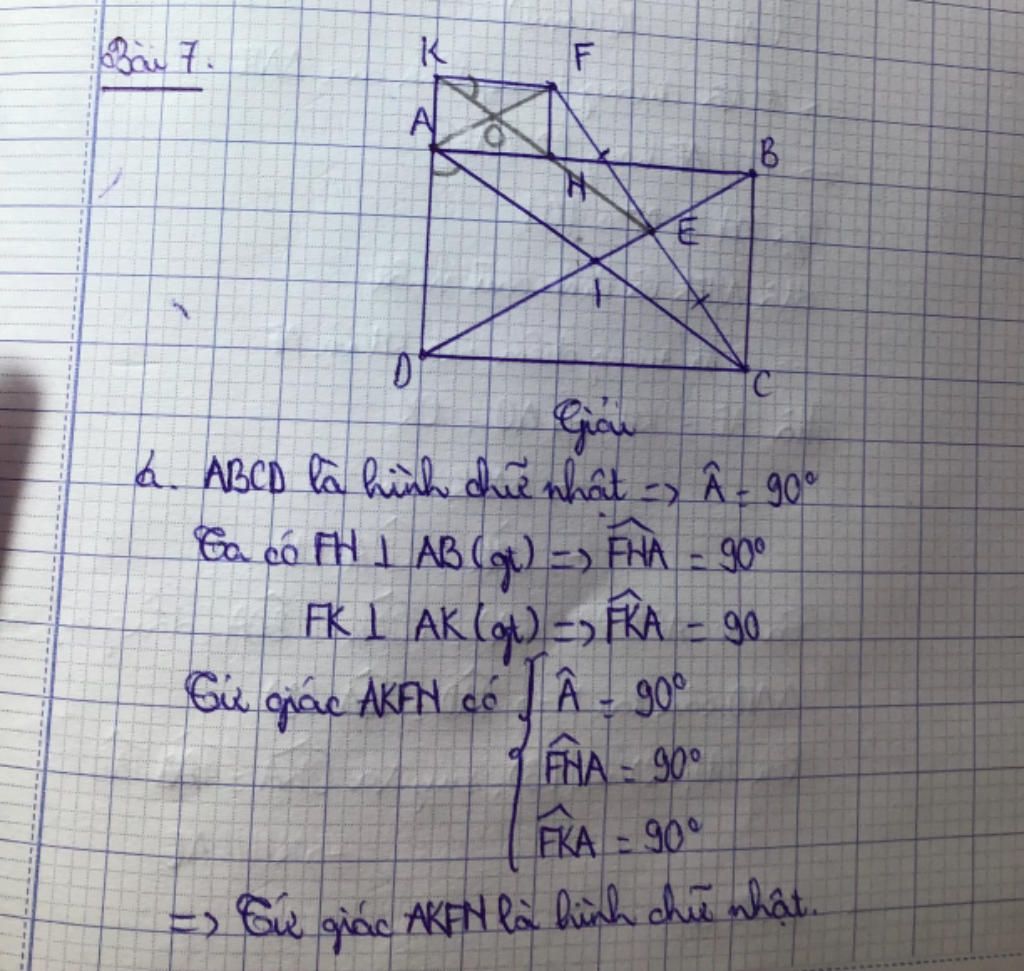 Bài 7.
K F
A O B
H E
I
D C
Giải
a. ABCD là hình chữ nhật => Â = 90°
Ta có FH ⊥ AB (gt) => \widehat{FHA} = 90°
FK ⊥ AK (gt) => \widehat{FKA} = 90
Tứ giác AKFH có { Â = 90°
\widehat{FHA} = 90°
\widehat{FKA} = 90°
=> Tứ giác AKFH là hình chữ nhật.